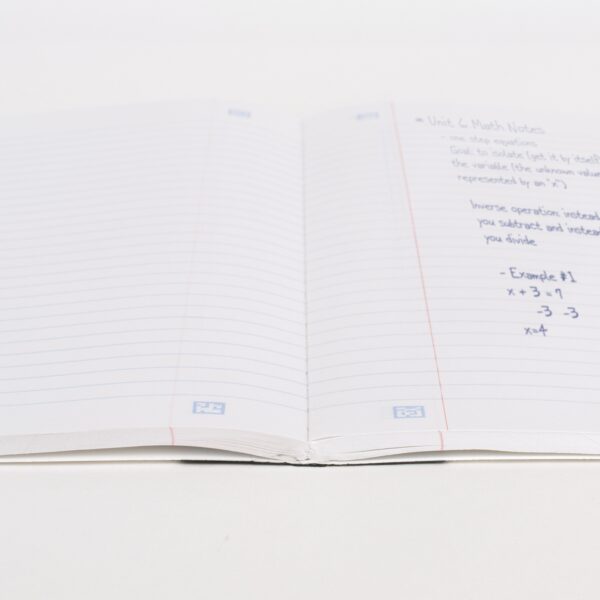 * Unit 6 Math Notes
- one step equations
Goal: to isolate (get it by itself)
the variable (the unknown value
represented by an "x")
Inverse operation instead
you subtract and instead
you divide
- Example #1
x + 3 = 7
-3 -3
x=4